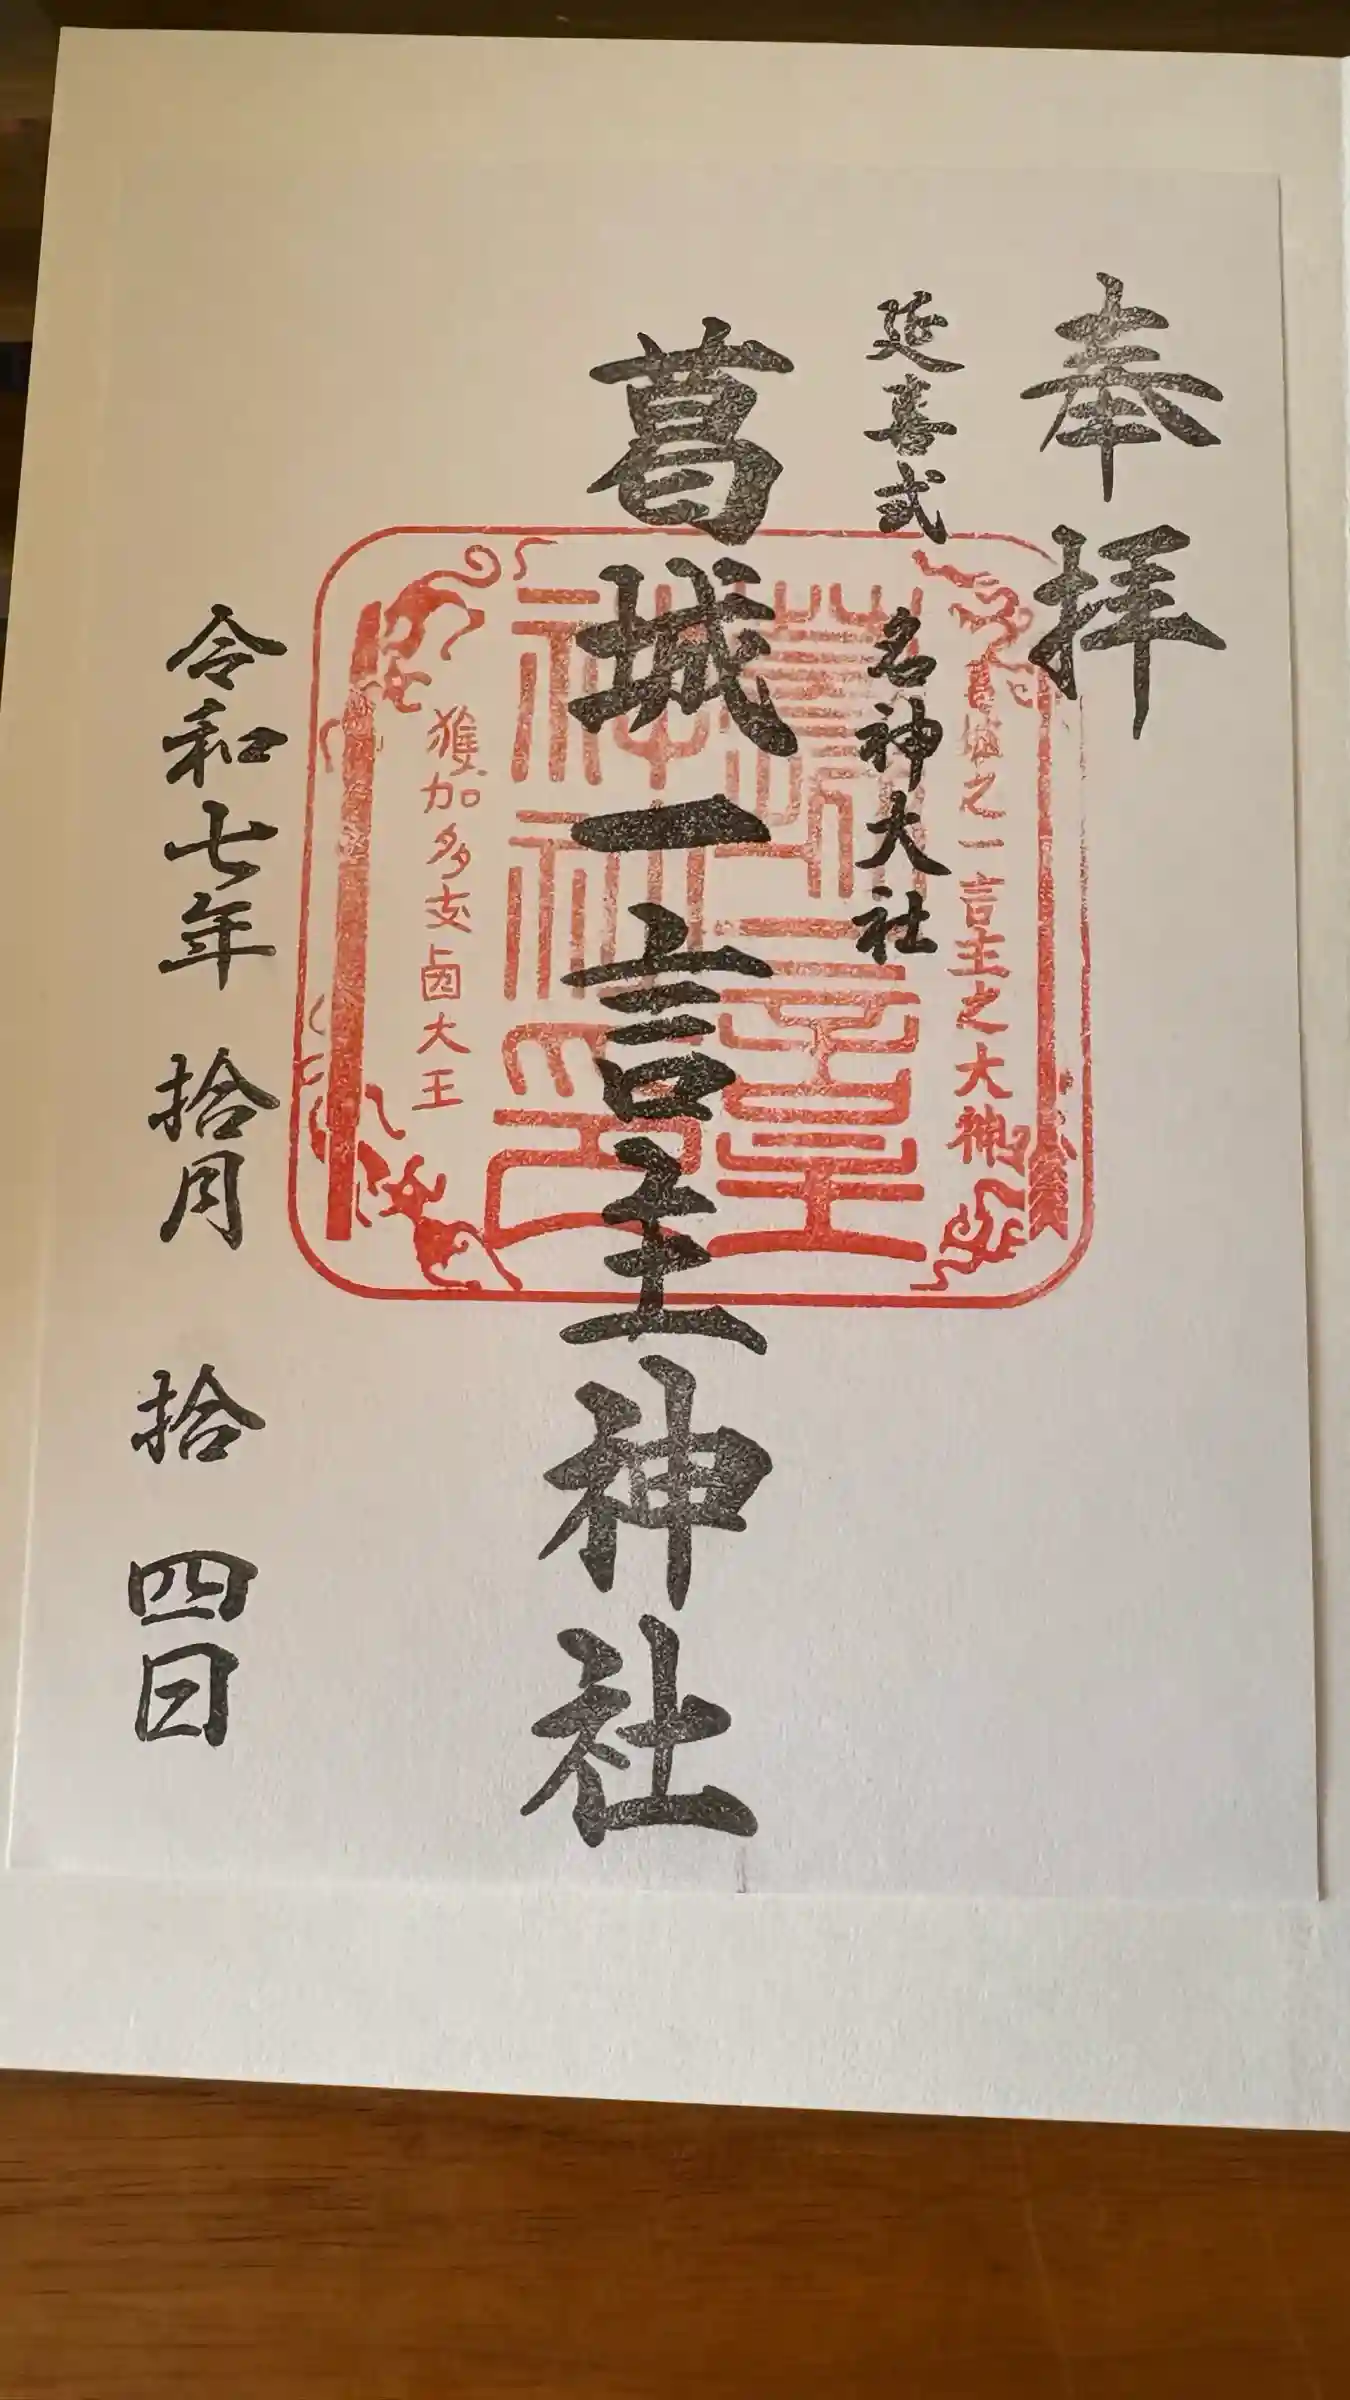 奉拝
延喜式 名神大社
葛城之一言主之大神
葛城一言主神社
獲加多支鹵大王
令和七年 拾月 拾四日